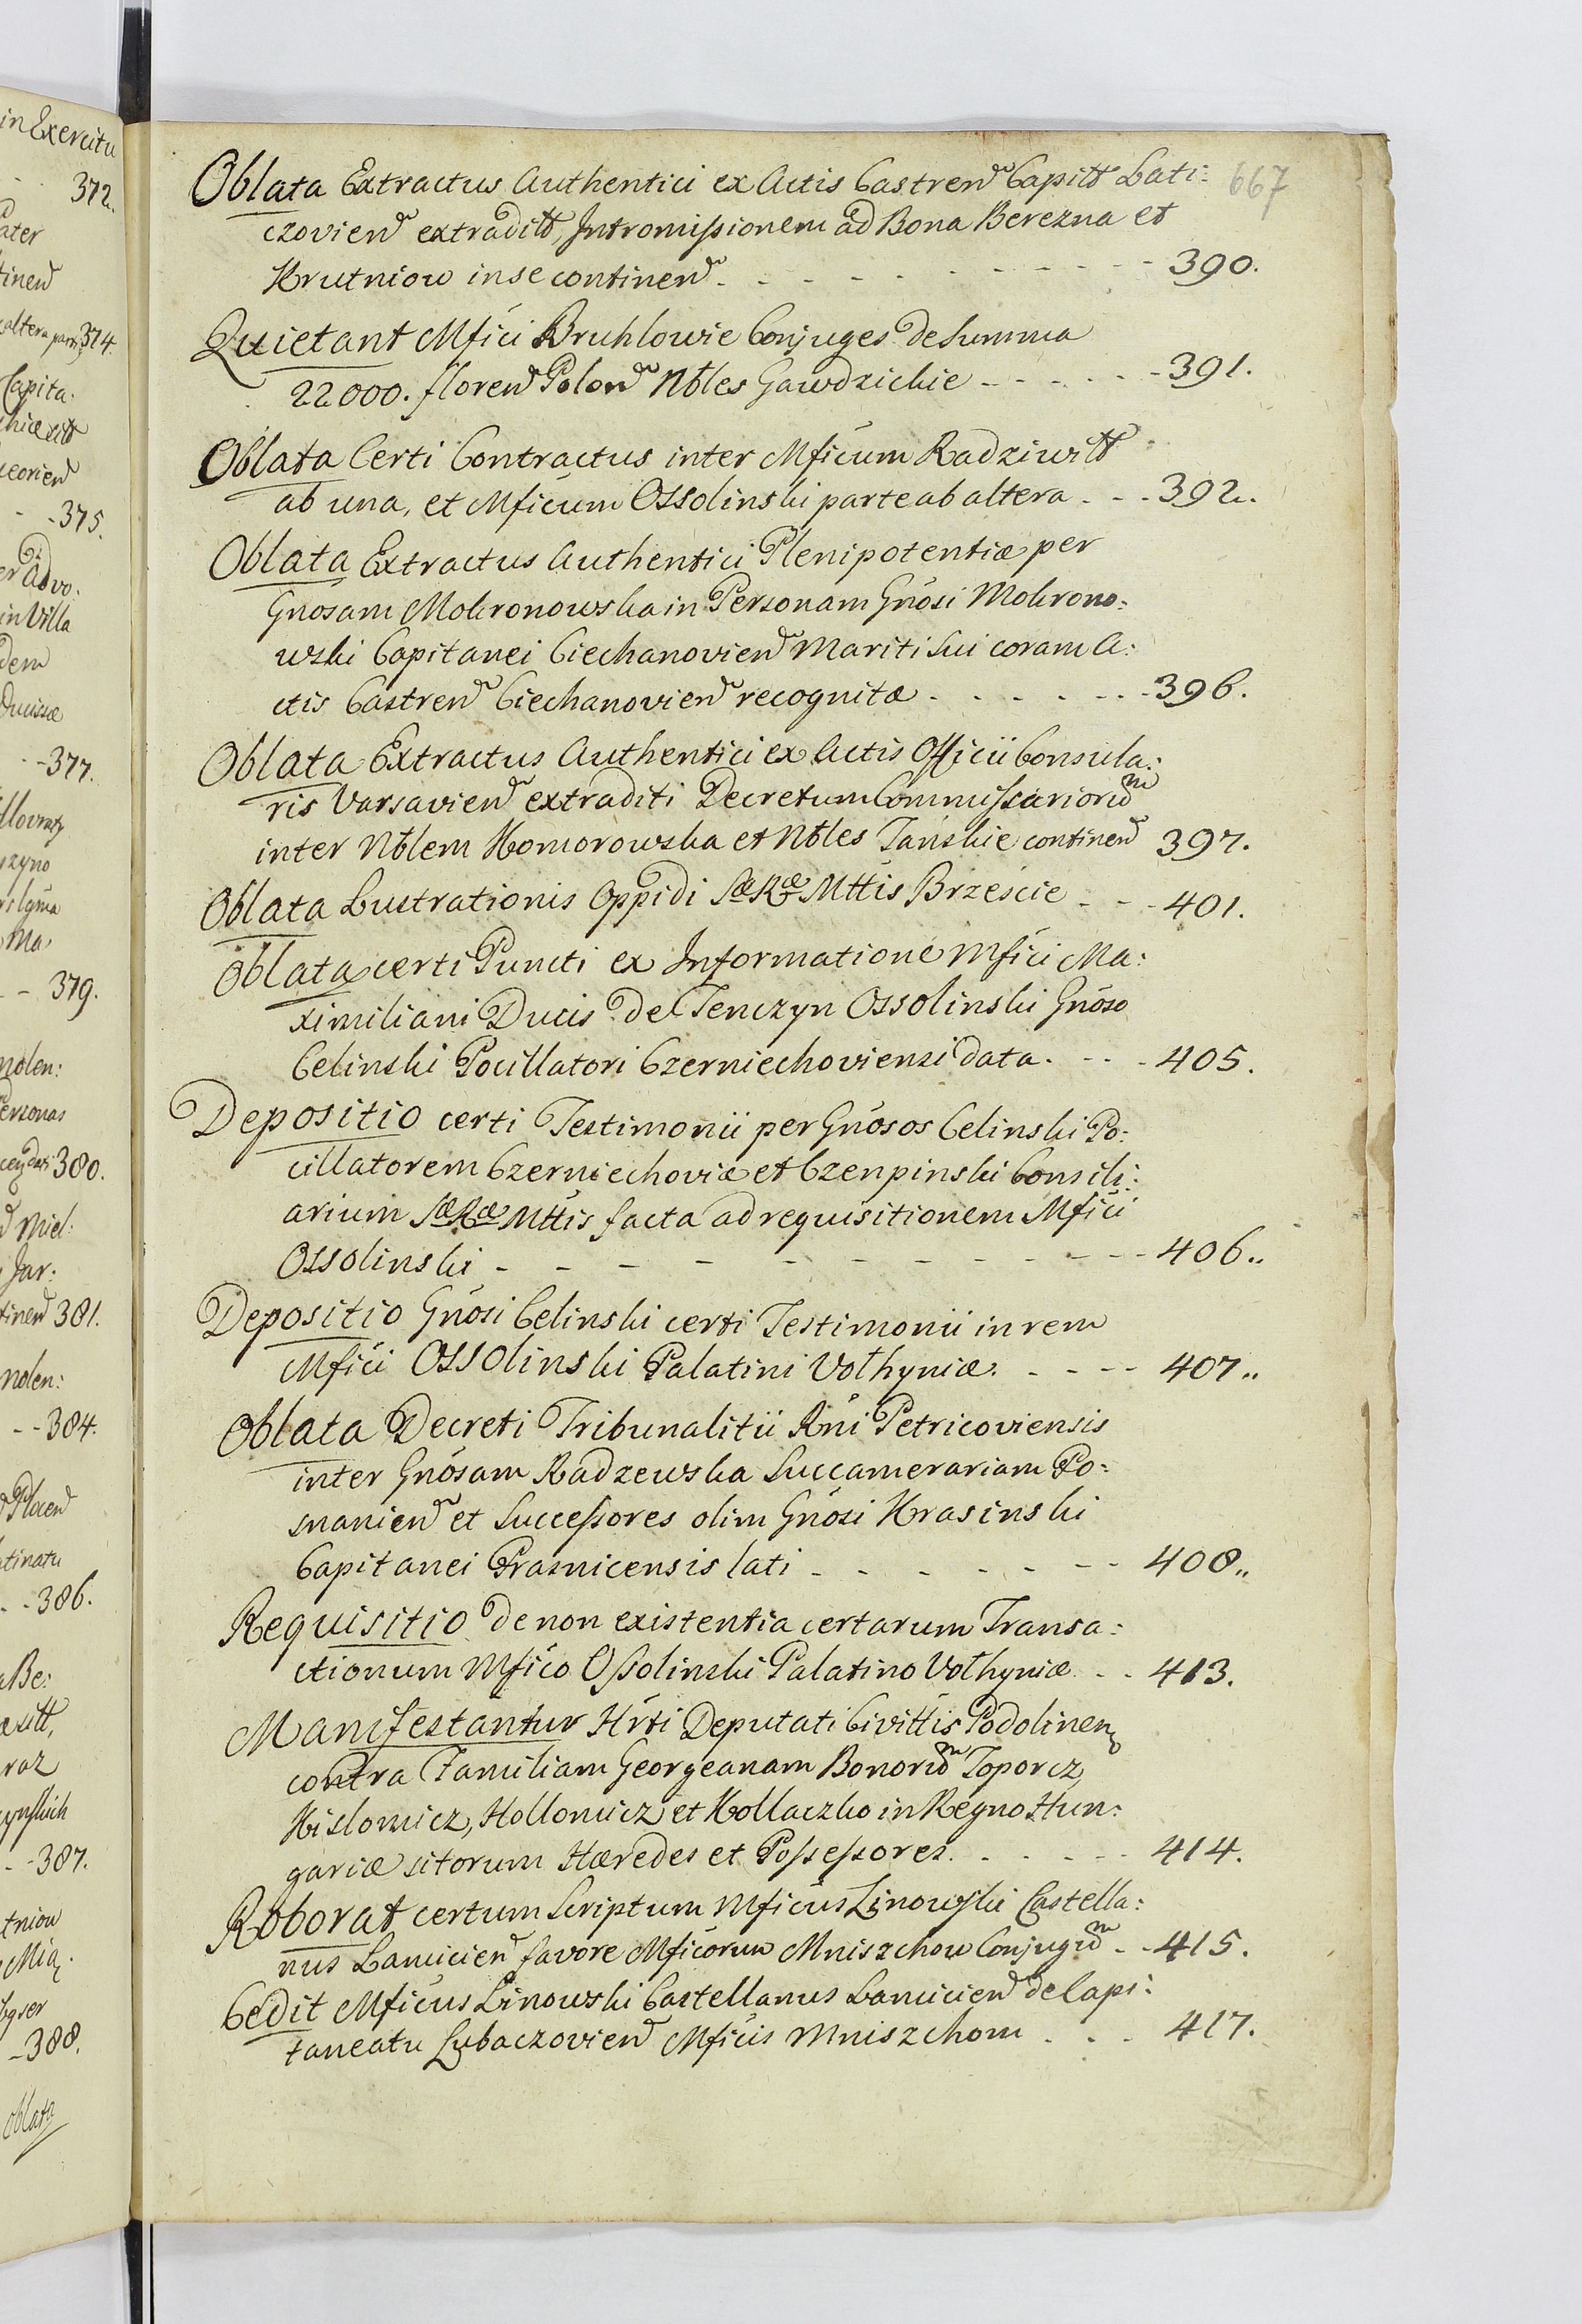 in Exercitu
372.
ater
tinen
altera pars 374.
Capita:
375.
Advo:
in Villa
dem
Ducissæ
377.
Ma
379.
nolen:
ersonas
380.
Miel:
Jur:
tinen 381.
nolen:
384.
atinatu
386.
Be:
raz
387.
tniow
388.
Oblata
667
Oblata Extractus Authentici ex Actis Castren Capitt Lati:
czovien extraditt, Intromissionem ad Bona Berezna et
Krutniow in se continen - - - - - - - 390.
Quietant Mfici Bruhlowie Conjuges de Summa
22000. floren Polon Nbles Gawdzickie - - - - - 391.
Oblata Certi Contractus inter Mficum Radziwitt
ab una, et Mficum Ossolinski parte ab altera - - - 392.
Oblata Extractus Authentici Plenipotentiæ per
Gnosam Mokronowska in Personam Gnosi Mokrono:
wski Capitanei Ciechanovien Mariti Sui coram A:
ctis Castren Ciechanovien recognitæ - - - - - - 396.
Oblata Extractus Authentici ex Actis Officii Consula:
ris Varsavien extraditi Decretum Commissarioru͞m
inter Nblem Komorowska et Nbles Tańskie continen 397.
Oblata Lustrationis Oppidi Sæ Ræ Mttis Brzescie - - - 401.
Oblata certi Puncti ex Informatione Mfici Ma:
ximiliani Ducis de Tenczyn Ossolinski Gnoso
Celinski Pocillatori Czerniechoviensi data - - - 405.
Depositio certi Testimonii per Gnosos Celinski Po:
cillatorem Czerniechoviæ et Czenpinski Consili:
arium Sæ Ræ Mttis facta ad requisitionem Mfici
Ossolinski - - - - - - - - - - 406..
Depositio Gnosi Celinski certi Testimonii in rem
Mfici Ossolinski Palatini Volhyniæ - - - - 407..
Oblata Decreti Tribunalitii Rni Petricoviensis
inter Gnosam Radzewska Succamerariam Po:
snanien et Successores olim Gnosi Krasinski
Capitanei Prasnicensis lati - - - - - - 408..
Requisitio de non existentia certarum Transa:
ctionum Mfico Ossolinski Palatino Volhyniæ - - 413.
Manifestantur Hrti Deputati Civittis Podolinen
contra Familiam Georgeanam Bonoru͞m Toporcz,
Kislomicz, Hollomicz et Kollaczko in Regno Hun:
gariæ sitorum Hæredes et Possessores - - - - - 414.
Roborat certum Scriptum Mficus Linowski Castella:
nus Lamicien favore Mficorum Mniszchow Conjugu͞m - - 415.
Cedit Mficus Linowski Castellanus Lamicien de Capi:
taneatu Lubaczovien Mficis Mniszchom - - - 417.